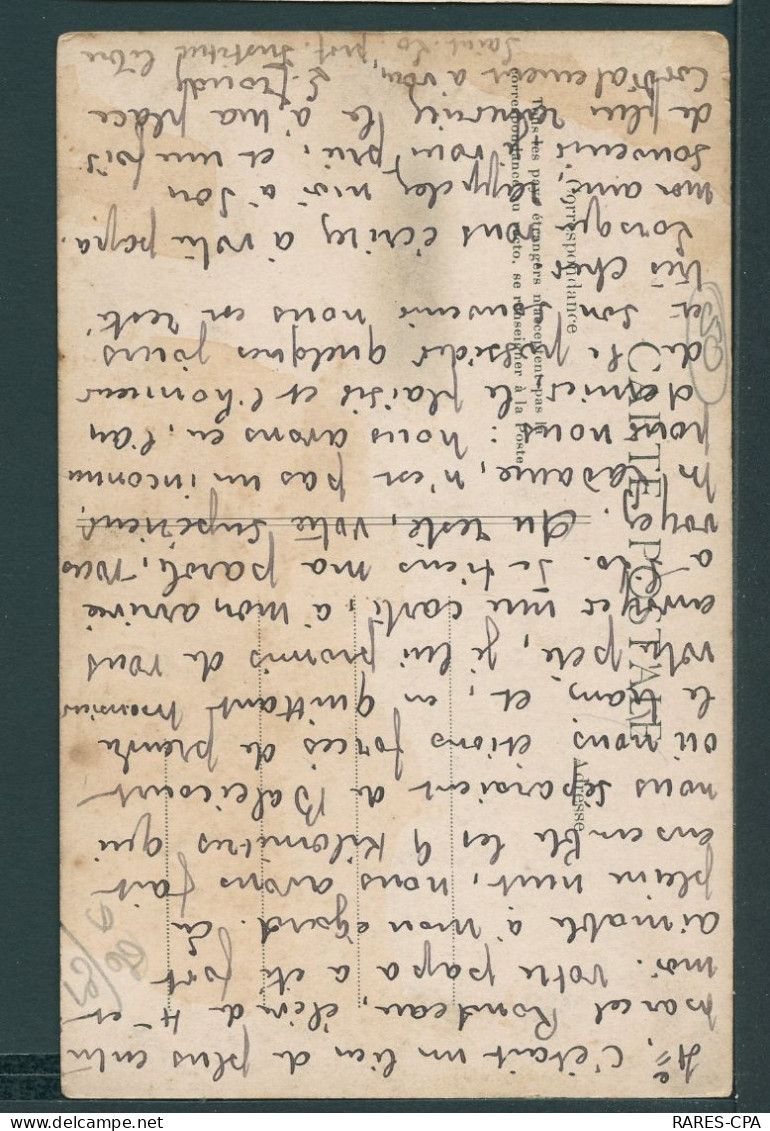 4e, c'était un lien de plus entre
Marcel Rondeau, élève de 4e et
moi. Votre papa a été fort
aimable à mon égard. En
pleine nuit, nous avons fait
ensemble les 9 kilomètres qui
nous séparaient de Baleicourt
où nous étions forcés de prendre
le train, et, en quittant Monsieur
votre père, je lui promis de vous
envoyer une carte, à mon arrivée
à St Lo. Je tiens ma parole, vous
voyez. Du reste, votre Supérieur,
Madame, n'est pas un inconnu
pour nous : nous avons eu, l'an
dernier, le plaisir et l'honneur
de le posséder quelques jours
et son souvenir nous en reste
très cher.
Lorsque vous écrirez à votre papa,
mon ami, rappelez moi à son
souvenir, je vous prie, et une fois
de plus remerciez le à ma place
Cordialement à vous,
Saint-Lo, prof. Institut libre
CARTE POSTALE
Correspondance
Tous les pays étrangers n'acceptent pas la
correspondance au recto, se renseigner à la Poste
Adresse
RARES-CPA